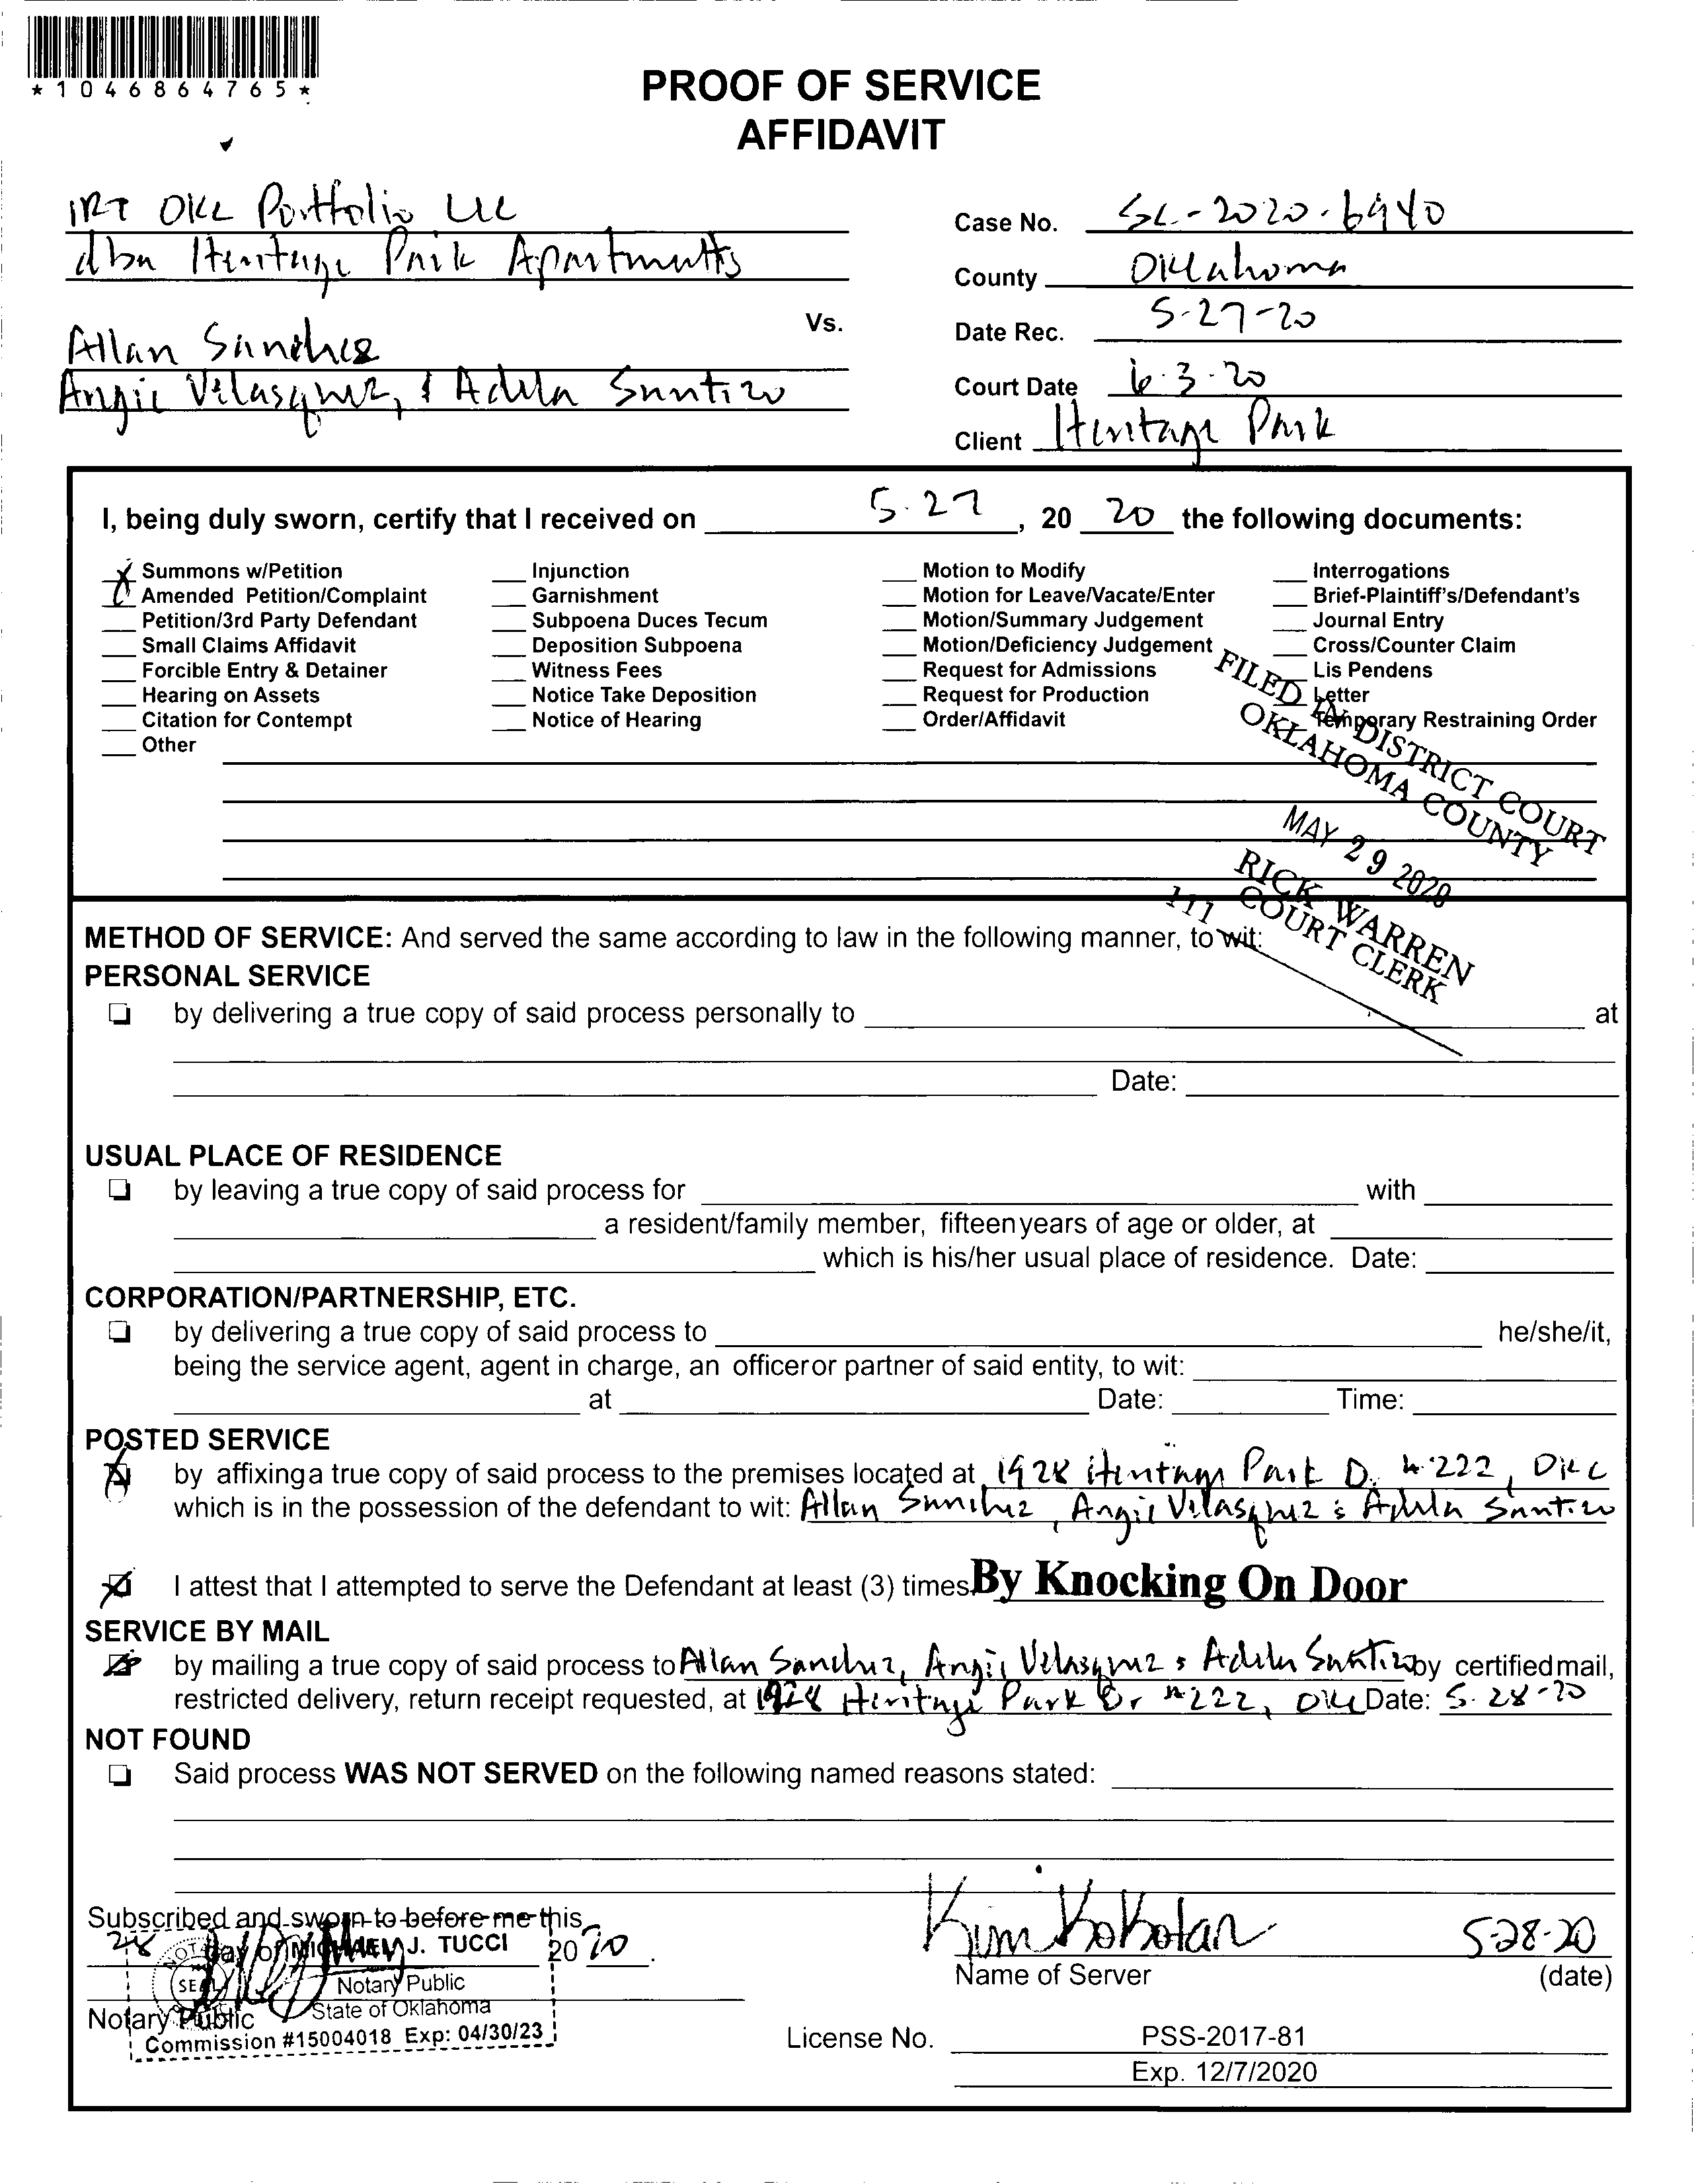 *1046864765*
PROOF OF SERVICE
AFFIDAVIT
IRT OKC Portfolio LLC
dba Heritage Park Apartments
Vs.
Allan Sanchez
Angie Velasquez, & Adela Santizo
Case No. SC-2020-6940
County Oklahoma
Date Rec. 5-27-20
Court Date 6-3-20
Client Heritage Park
I, being duly sworn, certify that I received on 5-27, 20 20 the following documents:
X Summons w/Petition
Amended Petition/Complaint
Petition/3rd Party Defendant
Small Claims Affidavit
Forcible Entry & Detainer
Hearing on Assets
Citation for Contempt
Other
Injunction
Garnishment
Subpoena Duces Tecum
Deposition Subpoena
Witness Fees
Notice Take Deposition
Notice of Hearing
Motion to Modify
Motion for Leave/Vacate/Enter
Motion/Summary Judgement
Motion/Deficiency Judgement
Request for Admissions
Request for Production
Order/Affidavit
Interrogations
Brief-Plaintiff's/Defendant's
Journal Entry
Cross/Counter Claim
Lis Pendens
Letter
Temporary Restraining Order
FILED IN DISTRICT COURT
OKLAHOMA COUNTY
MAY 29 2020
RICK WARREN
COURT CLERK
111
METHOD OF SERVICE: And served the same according to law in the following manner, to wit:
PERSONAL SERVICE
by delivering a true copy of said process personally to at
Date:
USUAL PLACE OF RESIDENCE
by leaving a true copy of said process for with
a resident/family member, fifteen years of age or older, at
which is his/her usual place of residence. Date:
CORPORATION/PARTNERSHIP, ETC.
by delivering a true copy of said process to he/she/it,
being the service agent, agent in charge, an officer or partner of said entity, to wit:
at Date: Time:
POSTED SERVICE
by affixing a true copy of said process to the premises located at 1928 Heritage Park D. #222, OKC
which is in the possession of the defendant to wit: Allan Sanchez, Angie Velasquez & Adela Santizo
I attest that I attempted to serve the Defendant at least (3) times By Knocking On Door
SERVICE BY MAIL
by mailing a true copy of said process to Allan Sanchez, Angie Velasquez & Adela Santizo by certified mail,
restricted delivery, return receipt requested, at 1928 Heritage Park Dr #222, OKC Date: 5-28-20
NOT FOUND
Said process WAS NOT SERVED on the following named reasons stated:
Subscribed and sworn to before me this
28 day of 20 20.
Notary Public
MICHAEL J. TUCCI
Notary Public
State of Oklahoma
Commission #15004018 Exp: 04/30/23
Kim Kokotan 5-28-20
Name of Server (date)
License No. PSS-2017-81
Exp. 12/7/2020